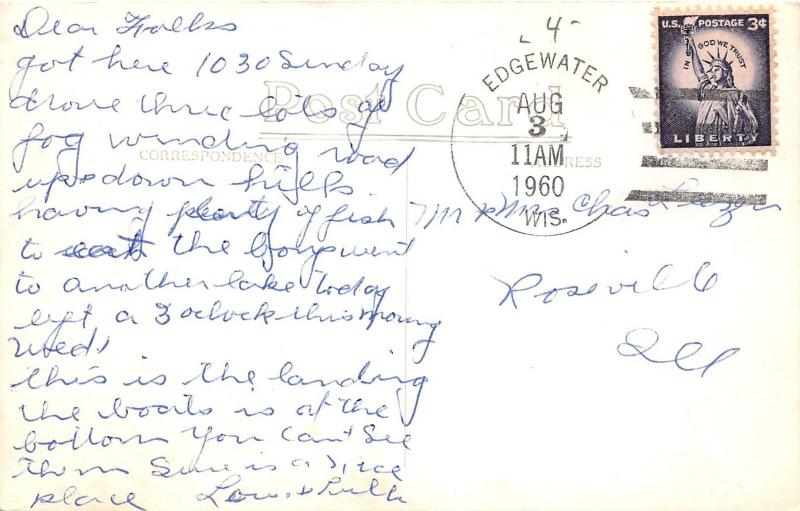 4
U.S. POSTAGE 3¢
IN GOD WE TRUST
LIBERTY
EDGEWATER
AUG
3
11AM
1960
WIS.
Post Card
CORRESPONDENCE
ADDRESS
Dear Folks
got here 1030 Sunday
drove thru lots of
fog winding road
up & down hills.
having plenty of fish
to eat the boys went
to another lake today
left a 3 oclock this morning
Wed.
this is the landing
the boats is at the
bottom You Can't See
them Sure is a nice
place Lou & Ruth
Mr & Mrs Chas
Roseville
Ill